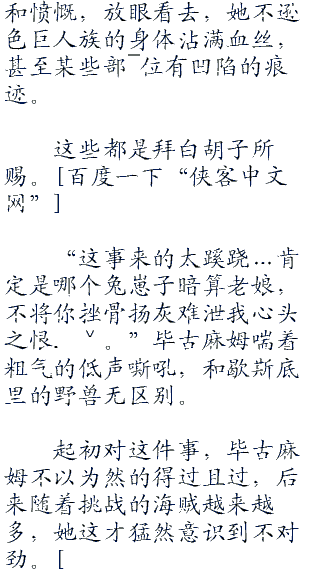 和愤慨，放眼看去，她不逊
色巨人族的身体沾满血丝，
甚至某些部¯位有凹陷的痕
迹。
这些都是拜白胡子所
赐。[百度一下“侠客中文
网”]
“这事来的太蹊跷…肯
定是哪个兔崽子暗算老娘，
不将你挫骨扬灰难泄我心头
之恨．ˇ。”毕古麻姆喘着
粗气的低声嘶吼，和歇斯底
里的野兽无区别。
起初对这件事，毕古麻
姆不以为然的得过且过，后
来随着挑战的海贼越来越
多，她这才猛然意识到不对
劲。[